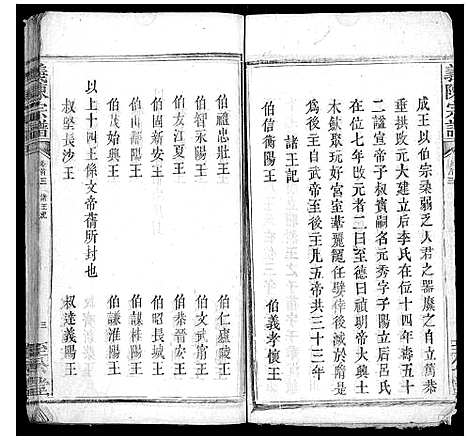 義陳宗譜
卷首三
成王以伯宗柔弱乏人君之器廢之而自立篤恭
垂拱改元大建立后李氏在位十四年壽五十
二諡宣帝子叔寶嗣名元秀字子陽立后呂氏
在位七年改元者二曰至德曰禎明帝大興土
木歛聚玩好宮室華麗寵任嬖倖後滅於隋
者後主自武帝至後主凡五帝共三十三年
諸王記
伯信衡陽王
伯義孝懷王
伯禮忠壯王
伯仁廬陵王
伯智永陽王
伯文武甯王
伯友江夏王
伯恭晉安王
伯固新安王
伯昭長城王
伯山鄱陽王
伯謀桂陽王
伯茂始興王
伯謙淮陽王
以上十四王係文帝蒨所封也
叔堅長沙王
叔達義陽王
義陳宗譜
卷首三
諸王記
三